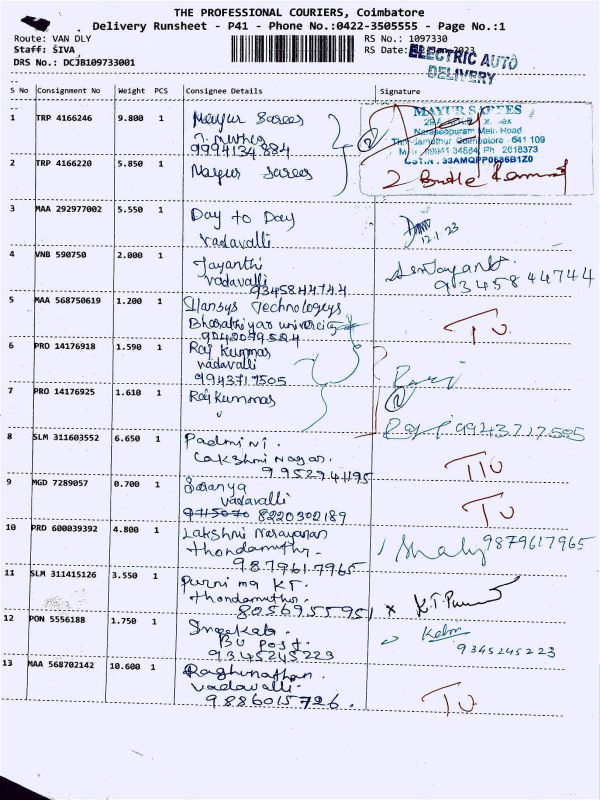 THE PROFESSIONAL COURIERS, Coimbatore
Delivery Runsheet - P41 - Phone No.:0422-3505555 - Page No.:1
Route: VAN DLY
RS No.: 1097330
Staff: SIVA
RS Date: 2023
DRS No.: DCJB109733001
ELECTRIC AUTO
DELIVERY
S No Consignment No Weight PCS Consignee Details Signature
1 TRP 4166246 9.800 1 Mayur Sarees
9994134884
MAYUR SAREES
Naraseepuram Main Road
Thondamuthur Coimbatore - 641 109
Ph 2618373
GSTIN : 33AMQPP0586B1Z0
2
2 TRP 4166220 5.850 1 Mayur Sarees
2 Bundle
3 MAA 292977002 5.550 1 Day to Day
Vadavalli
12.1.23
4 VNB 590750 2.000 1 Jayanthi
Vadavalli
9345844744
93458 44744
5 MAA 568750619 1.200 1 Technologys
Bharathiyar university
TU
6 PRO 14176918 1.590 1 Raj Kummar
Vadavalli
9943717505
2
7 PRO 14176925 1.610 1 Raj Kummar
9943717505
8 SLM 311603552 6.650 1 Padmini.
Lakshmi Nagar.
9952941195
9 MGD 7289057 0.700 1 Saranya
Vadavalli
9715070 8220302189
TU
10 PRD 600039392 4.800 1 Lakshmi Narayanan
Thondamuthr.
9879617965
9879617965
11 SLM 311415126 3.550 1 Purnima KT.
Thondamuthr.
8056955951
x K.T.
12 PON 5556188 1.750 1
BU Post.
9345245223
9345245223
13 MAA 568702142 10.600 1 Raghunathan.
Vadavalli.
9886015726.
TU